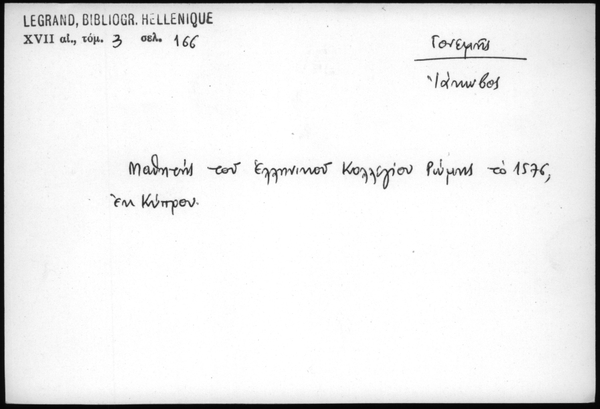 LEGRAND, BIBLIOGR. HELLENIQUE
XVII αἰ., τόμ. 3 σελ. 166
Γονεμῆς
Ἰάκωβος
Μαθητής τοῦ Ἑλληνικοῦ Κολλεγίου Ρώμης τὸ 1576,
ἐκ Κύπρου.